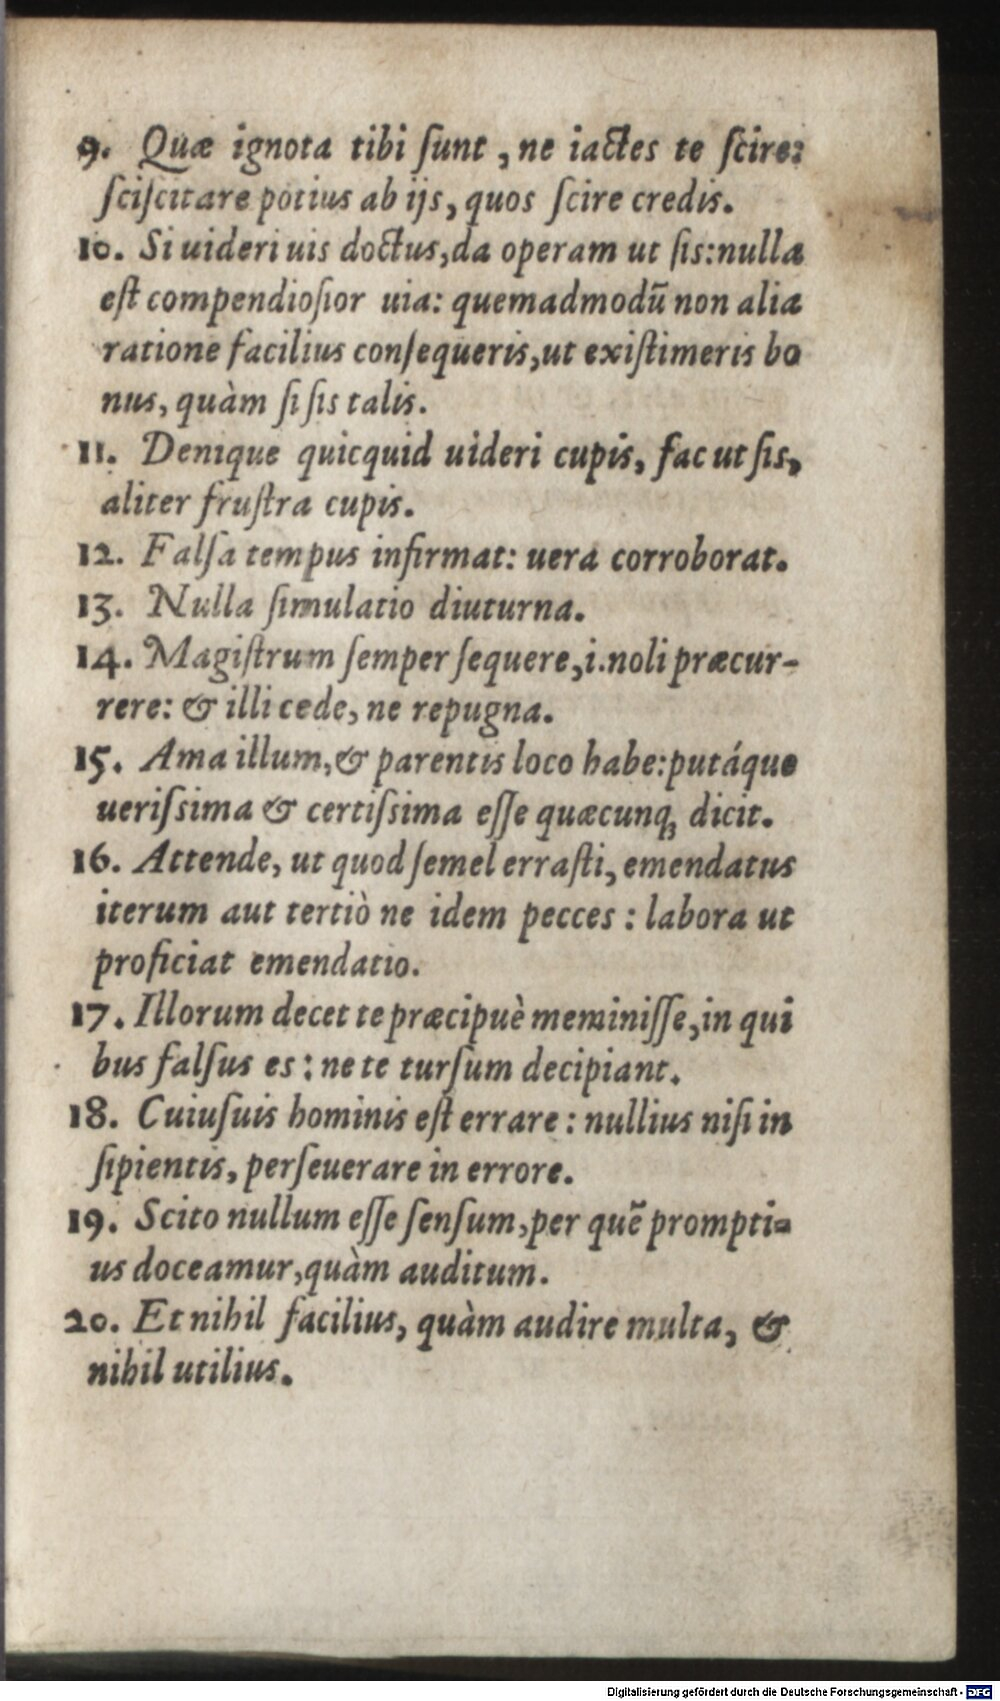 9. Quæ ignota tibi ſunt, ne iactes te ſcire:
ſciſcitare potius ab ijs, quos ſcire credis.
10. Si uideri uis doctus, da operam ut ſis: nulla
eſt compendioſior uia: quemadmodū non alia
ratione facilius conſequeris, ut exiſtimeris bo
nus, quàm ſi ſis talis.
11. Denique quicquid uideri cupis, fac ut ſis,
aliter fruſtra cupis.
12. Falſa tempus infirmat: uera corroborat.
13. Nulla ſimulatio diuturna.
14. Magiſtrum ſemper ſequere, i. noli præcur-
rere: & illi cede, ne repugna.
15. Ama illum, & parentis loco habe: putáque
ueriſsima & certiſsima eſſe quæcunq; dicit.
16. Attende, ut quod ſemel erraſti, emendatus
iterum aut tertiò ne idem pecces: labora ut
proficiat emendatio.
17. Illorum decet te præcipuè meminiſſe, in qui
bus falſus es: ne te turſum decipiant.
18. Cuiuſuis hominis eſt errare: nullius niſi in
ſipientis, perſeuerare in errore.
19. Scito nullum eſſe ſenſum, per quē prompti-
us doceamur, quàm auditum.
20. Et nihil facilius, quàm audire multa, &
nihil utilius.
Digitalisierung gefördert durch die Deutsche Forschungsgemeinschaft - DFG